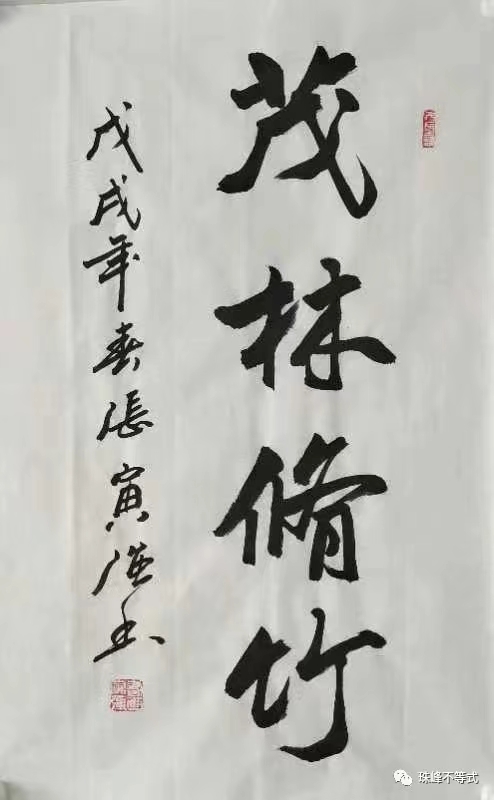 茂林脩竹
戊戌年春張寅沍書
珠峰不等式